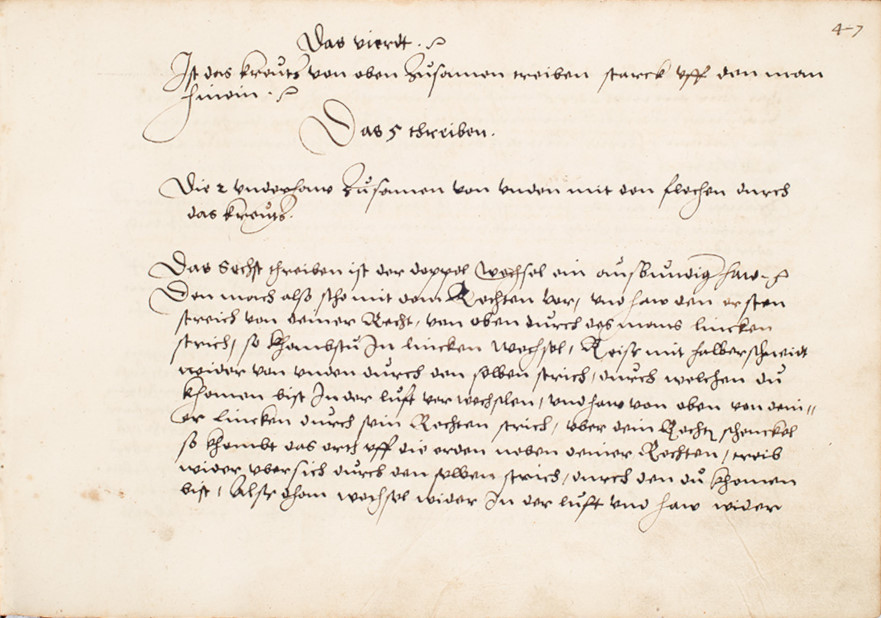 47
Das vierdt.
Ist das kreutz von oben zusamen treiben starck vff den man
hinein.
Das 5 threiben.
Die 2 vnderhaw zusamen von vnden mit den flechen durch
das kreutz.
Das Sechst threiben ist der doppel wechsel ein ausbundig haw.
Den mach also sthe mit dem Rechten vor, vnd haw den ersten
streich von deiner Recht, von oben durch des mans lincken
strich, so khombstu In lincken wechsel, Reiss mit halber schneidt
wider von vnden durch den selben strich, durch welchen du
khomen bist In der luft verwechslen, vnd haw von oben von dein
er lincken durch sein Rechten strich, vber dein Recht schenckel
so khombt das orth vff die erden neben deiner Rechten, treib
wider vbersich durch den selben strich, durch den du khomen
bist, Also dham wechsel wider In der luft vnd haw wider